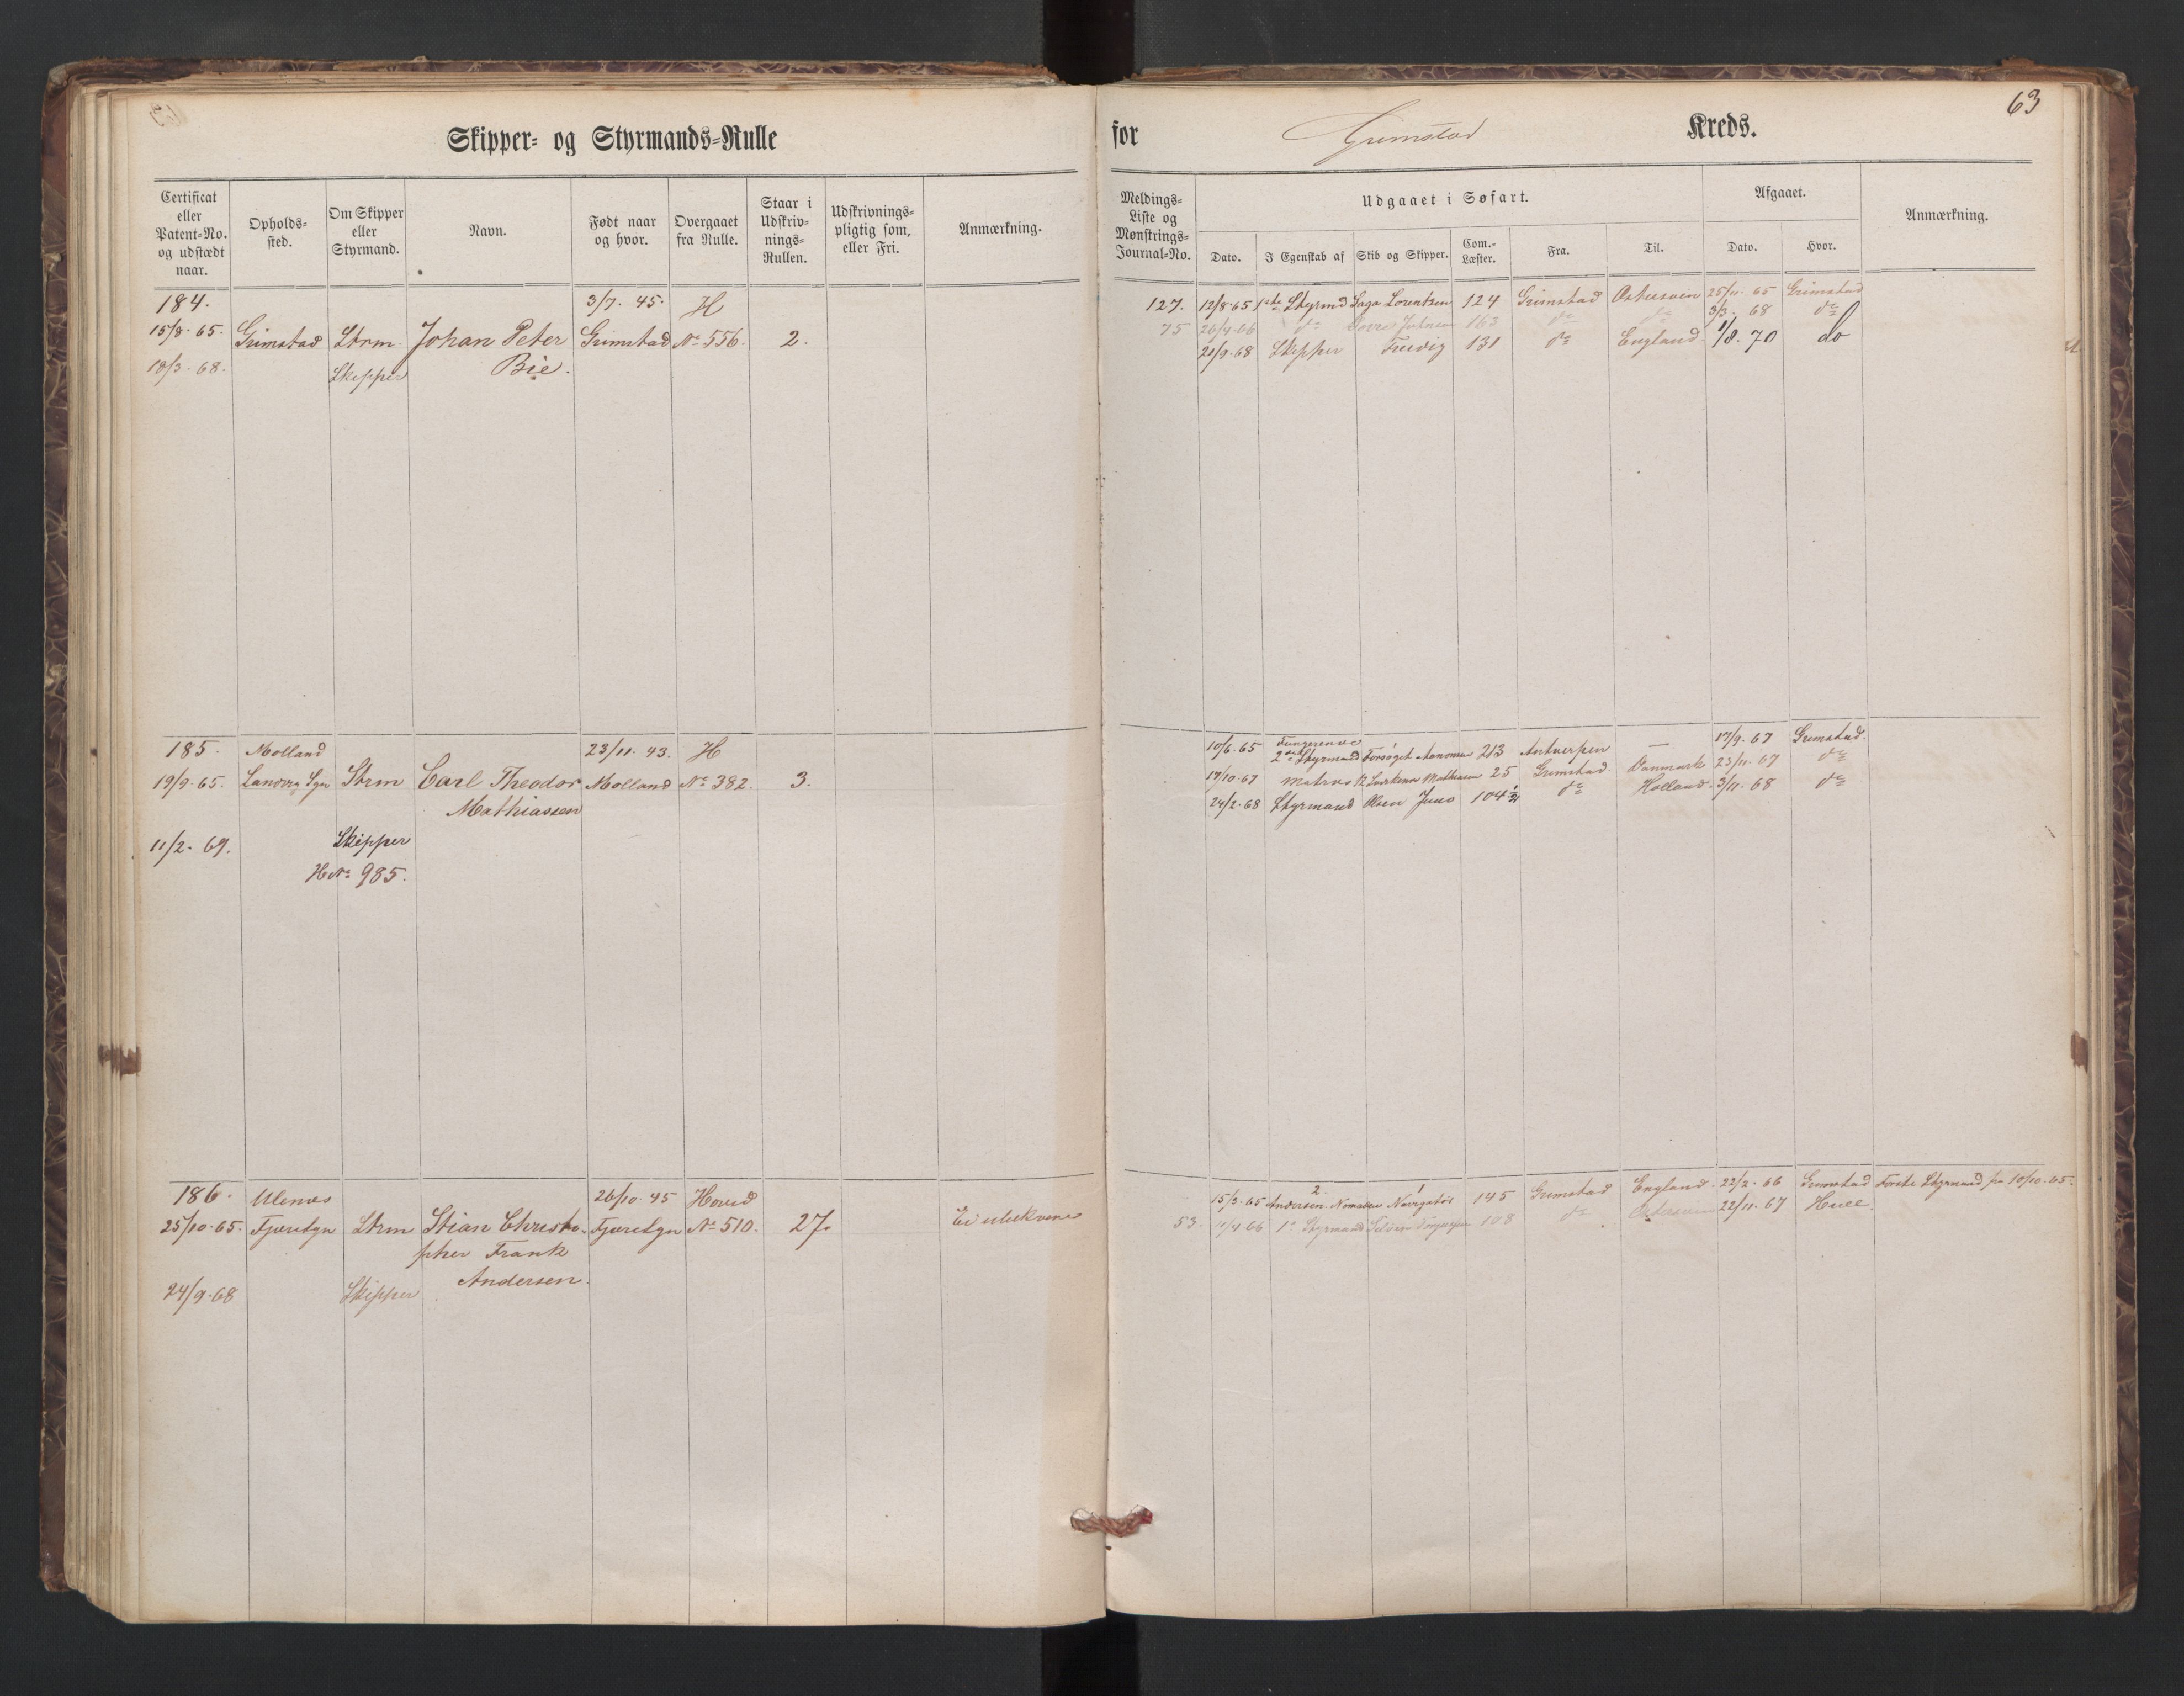 Skipper- og Styrmands-Rulle
Certificat eller Patent-No. og udstædt naar.
Opholds-sted.
Om Skipper eller Styrmand.
Navn.
Født naar og hvor.
Overgaaet fra Rulle.
Staar i Udskriv-nings-Rullen.
Udskrivnings-pligtig som, eller Fri.
Anmærkning.
184. 3/7. 45. H
15/8. 65. Grimstad Strm. Johan Peter Grimstad No 556. 2.
18/3. 68. Skipper Bie.
185. Molland 23/11. 43. H
19/9. 65. Landvig Sgn Strm Carl Theodor Molland No 382. 3.
Mathiassen
11/2. 69. Skipper
H No 985.
186. 26/10. 45 Hoved
25/10. 65. Fjære Sgn Strm Stian Christo- Fjære Sgn No 510. 27.
pher Frank
24/9. 68 Skipper Andersen.
for Grimstad Kreds.
63
Meldings-Liste og Mønstrings-Journal-No.
Udgaaet i Søfart.
Dato.
I Egenskab af
Skib og Skipper.
Com.-Læster.
Fra.
Til.
Afgaaet.
Dato.
Hvor.
Anmærkning.
127. 12/8. 65 1ste Styrmd Saga Lorentzen 124 Grimstad Østersøen 25/11. 65 Grimstad
75 26/4. 66 do 163 do do 3/3. 68 do
21/9. 68 Skipper 131 do England 1/8. 70 do
10/6. 65 Fungerende 2den Styrmand Forsøget Aanonsen 213 Antverpen — 17/9. 67 Grimstad.
17/10. 67 Matros Mathiasen 25 Grimstad Danmark 23/11. 67 do
24/2. 68 Styrmand Olsen Juno 104 do Holland 3/11. 68 do
15/3. 65 2 Andersen 1 Navigatör 145 Grimstad England. 22/2. 66 Grimstad Første Styrmand fra 10/10. 65.
53. 11/4 66 1e Styrmand 108 do Østersøen 22/11. 67 Hull